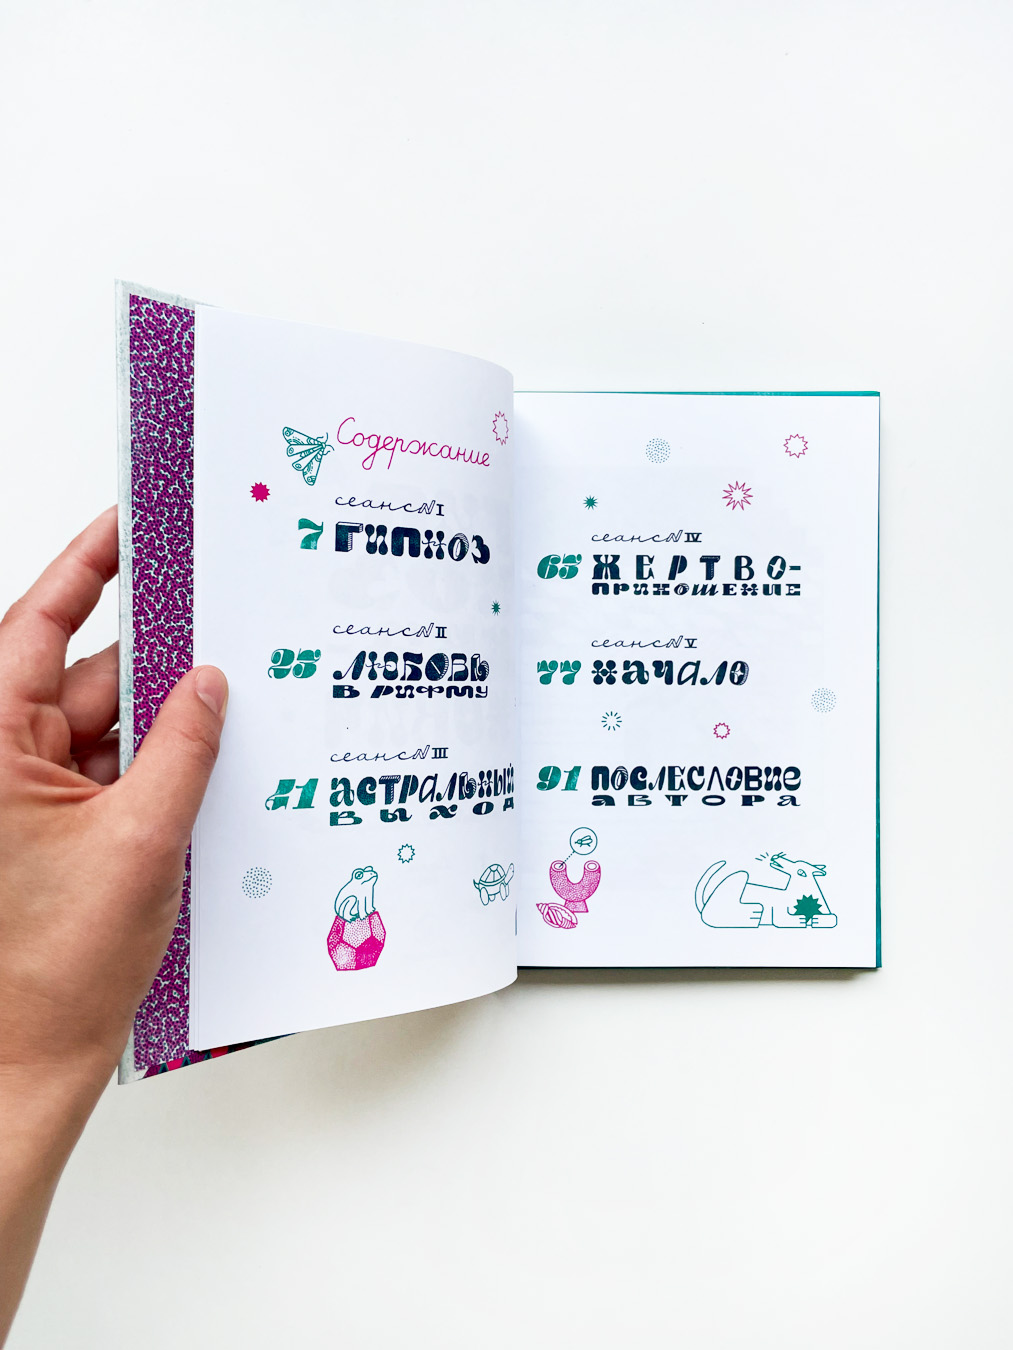 Содержание
сеанс № I
7 ГИПНОЗ
сеанс № II
25 ЛЮБОВЬ
В РИФМУ
сеанс № III
41 АСТРАЛЬНЫЙ
ВЫХОД
сеанс № IV
65 ЖЕРТВО-
ПРИНОШЕНИЕ
сеанс № V
77 НАЧАЛО
91 ПОСЛЕСЛОВИЕ
АВТОРА